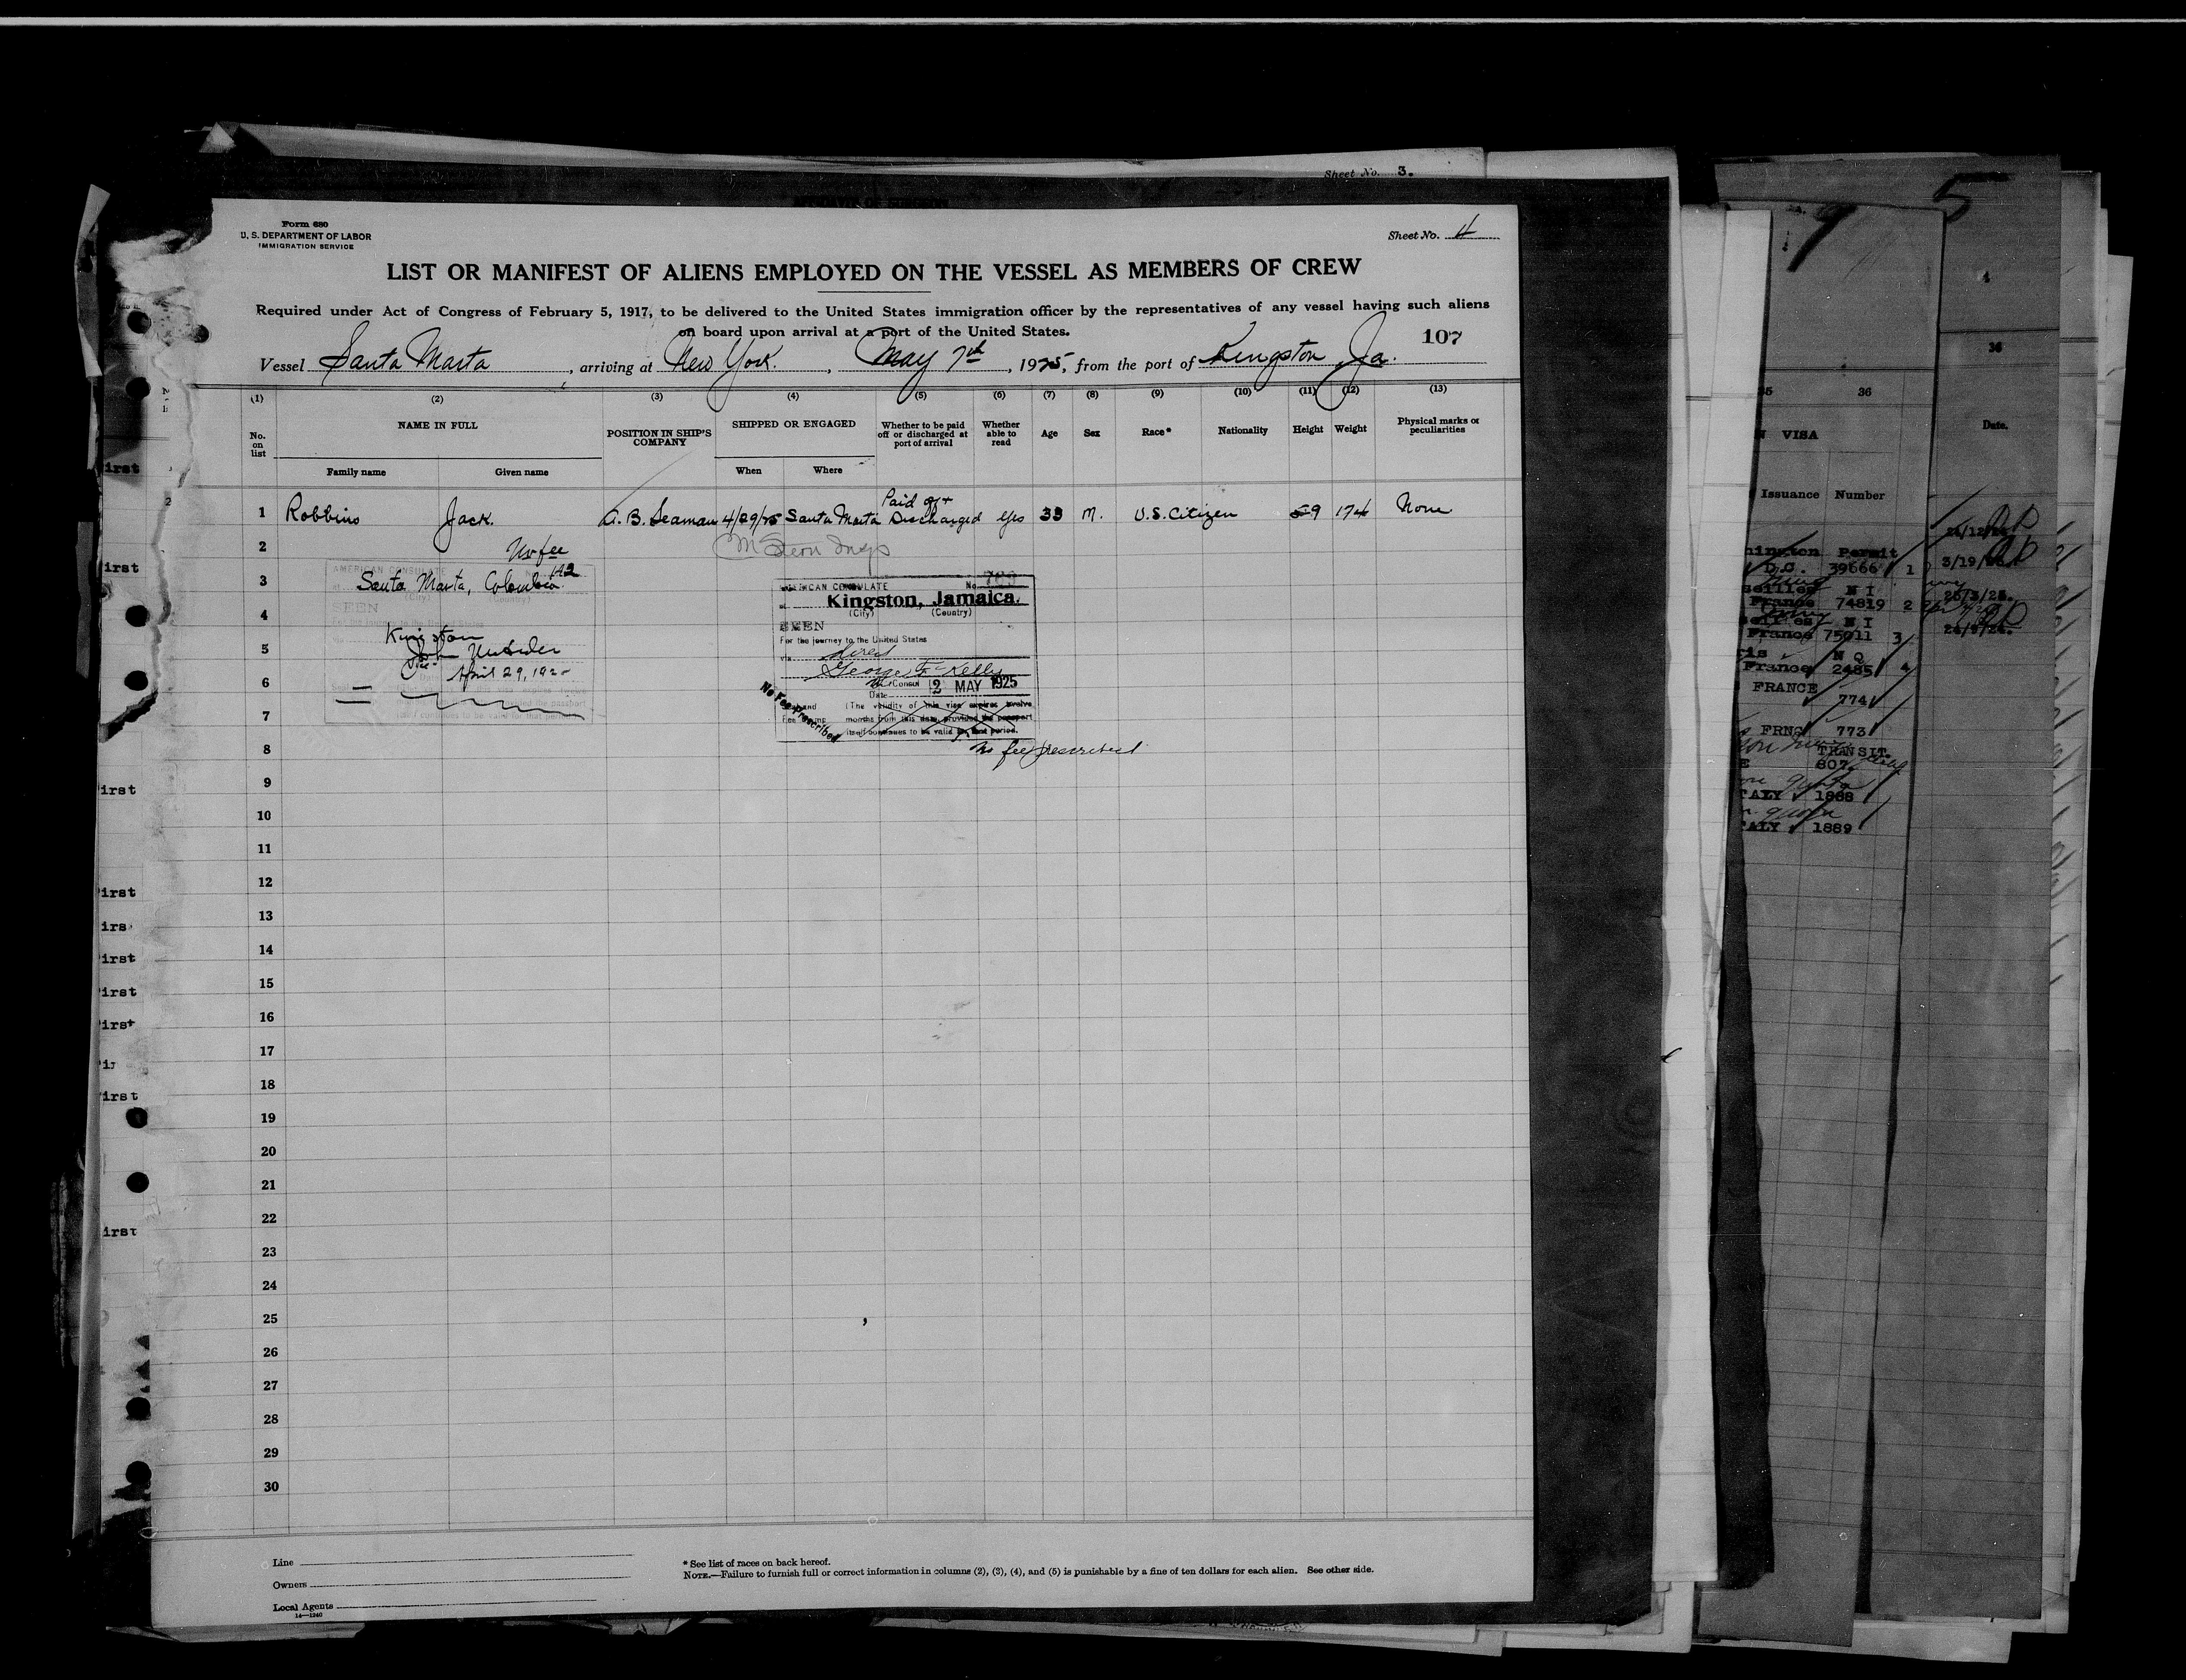 Sheet No. 3.
Form 680
U. S. DEPARTMENT OF LABOR
IMMIGRATION SERVICE
Sheet No. 4
LIST OR MANIFEST OF ALIENS EMPLOYED ON THE VESSEL AS MEMBERS OF CREW
Required under Act of Congress of February 5, 1917, to be delivered to the United States immigration officer by the representatives of any vessel having such aliens
on board upon arrival at a port of the United States.
107
Vessel Santa Marta, arriving at New York., May 7th, 1925, from the port of Kingston Ja.
(1) (2) (3) (4) (5) (6) (7) (8) (9) (10) (11) (12) (13)
No. on list NAME IN FULL POSITION IN SHIP'S COMPANY SHIPPED OR ENGAGED Whether to be paid off or discharged at port of arrival Whether able to read Age Sex Race* Nationality Height Weight Physical marks or peculiarities
Family name Given name When Where
1 Robbins Jack. A. B. Seaman 4/29/25 Santa Marta Paid off + Discharged Yes 33 M. U.S. Citizen 59 174 None
2
No fee
AMERICAN CONSULATE
3 Santa Marta, Colombia 142
(City) (Country)
SEEN
4
For the journey to the United States
Kingston
5
April 29, 192
AMERICAN CONSULATE No.
at Kingston, Jamaica.
(City) (Country)
SEEN
For the journey to the United States
via direct
George F. Kelly
6
Vice Consul
Date 2 MAY 1925
No Fee Prescribed
(The validity of this visa expires twelve
7
months from this date, provided the passport
itself continues to be valid for that period.
8 No fee prescribed
9
10
11
12
13
14
15
16
17
18
19
20
21
22
23
24
25
26
27
28
29
30
Line
Owners
Local Agents
14—1240
* See list of races on back hereof.
NOTE.—Failure to furnish full or correct information in columns (2), (3), (4), and (5) is punishable by a fine of ten dollars for each alien. See other side.
5
4
36
36
VISA
Date.
Issuance Number
Permit
D.C. 39666 1
3/19/
N I
France 74819 2
N I
France 75011 3
N Q
France 2485 4
FRANCE
774
773
TRANSIT
607
1888
1889